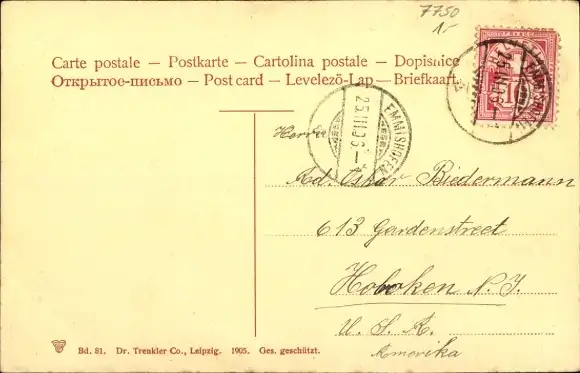 7750
1.-
Carte postale — Postkarte — Cartolina postale — Dopisnice
Открытое-письмо — Post card — Levelező-Lap — Briefkaart
EMMISHOFEN
25.III.06.-
EMMISHOFEN
Herrn
Ad. Oskar Biedermann
613 Gardenstreet
Hoboken N.J.
U. S. A.
Amerika
Bd. 81. Dr. Trenkler Co., Leipzig. 1905. Ges. geschützt.